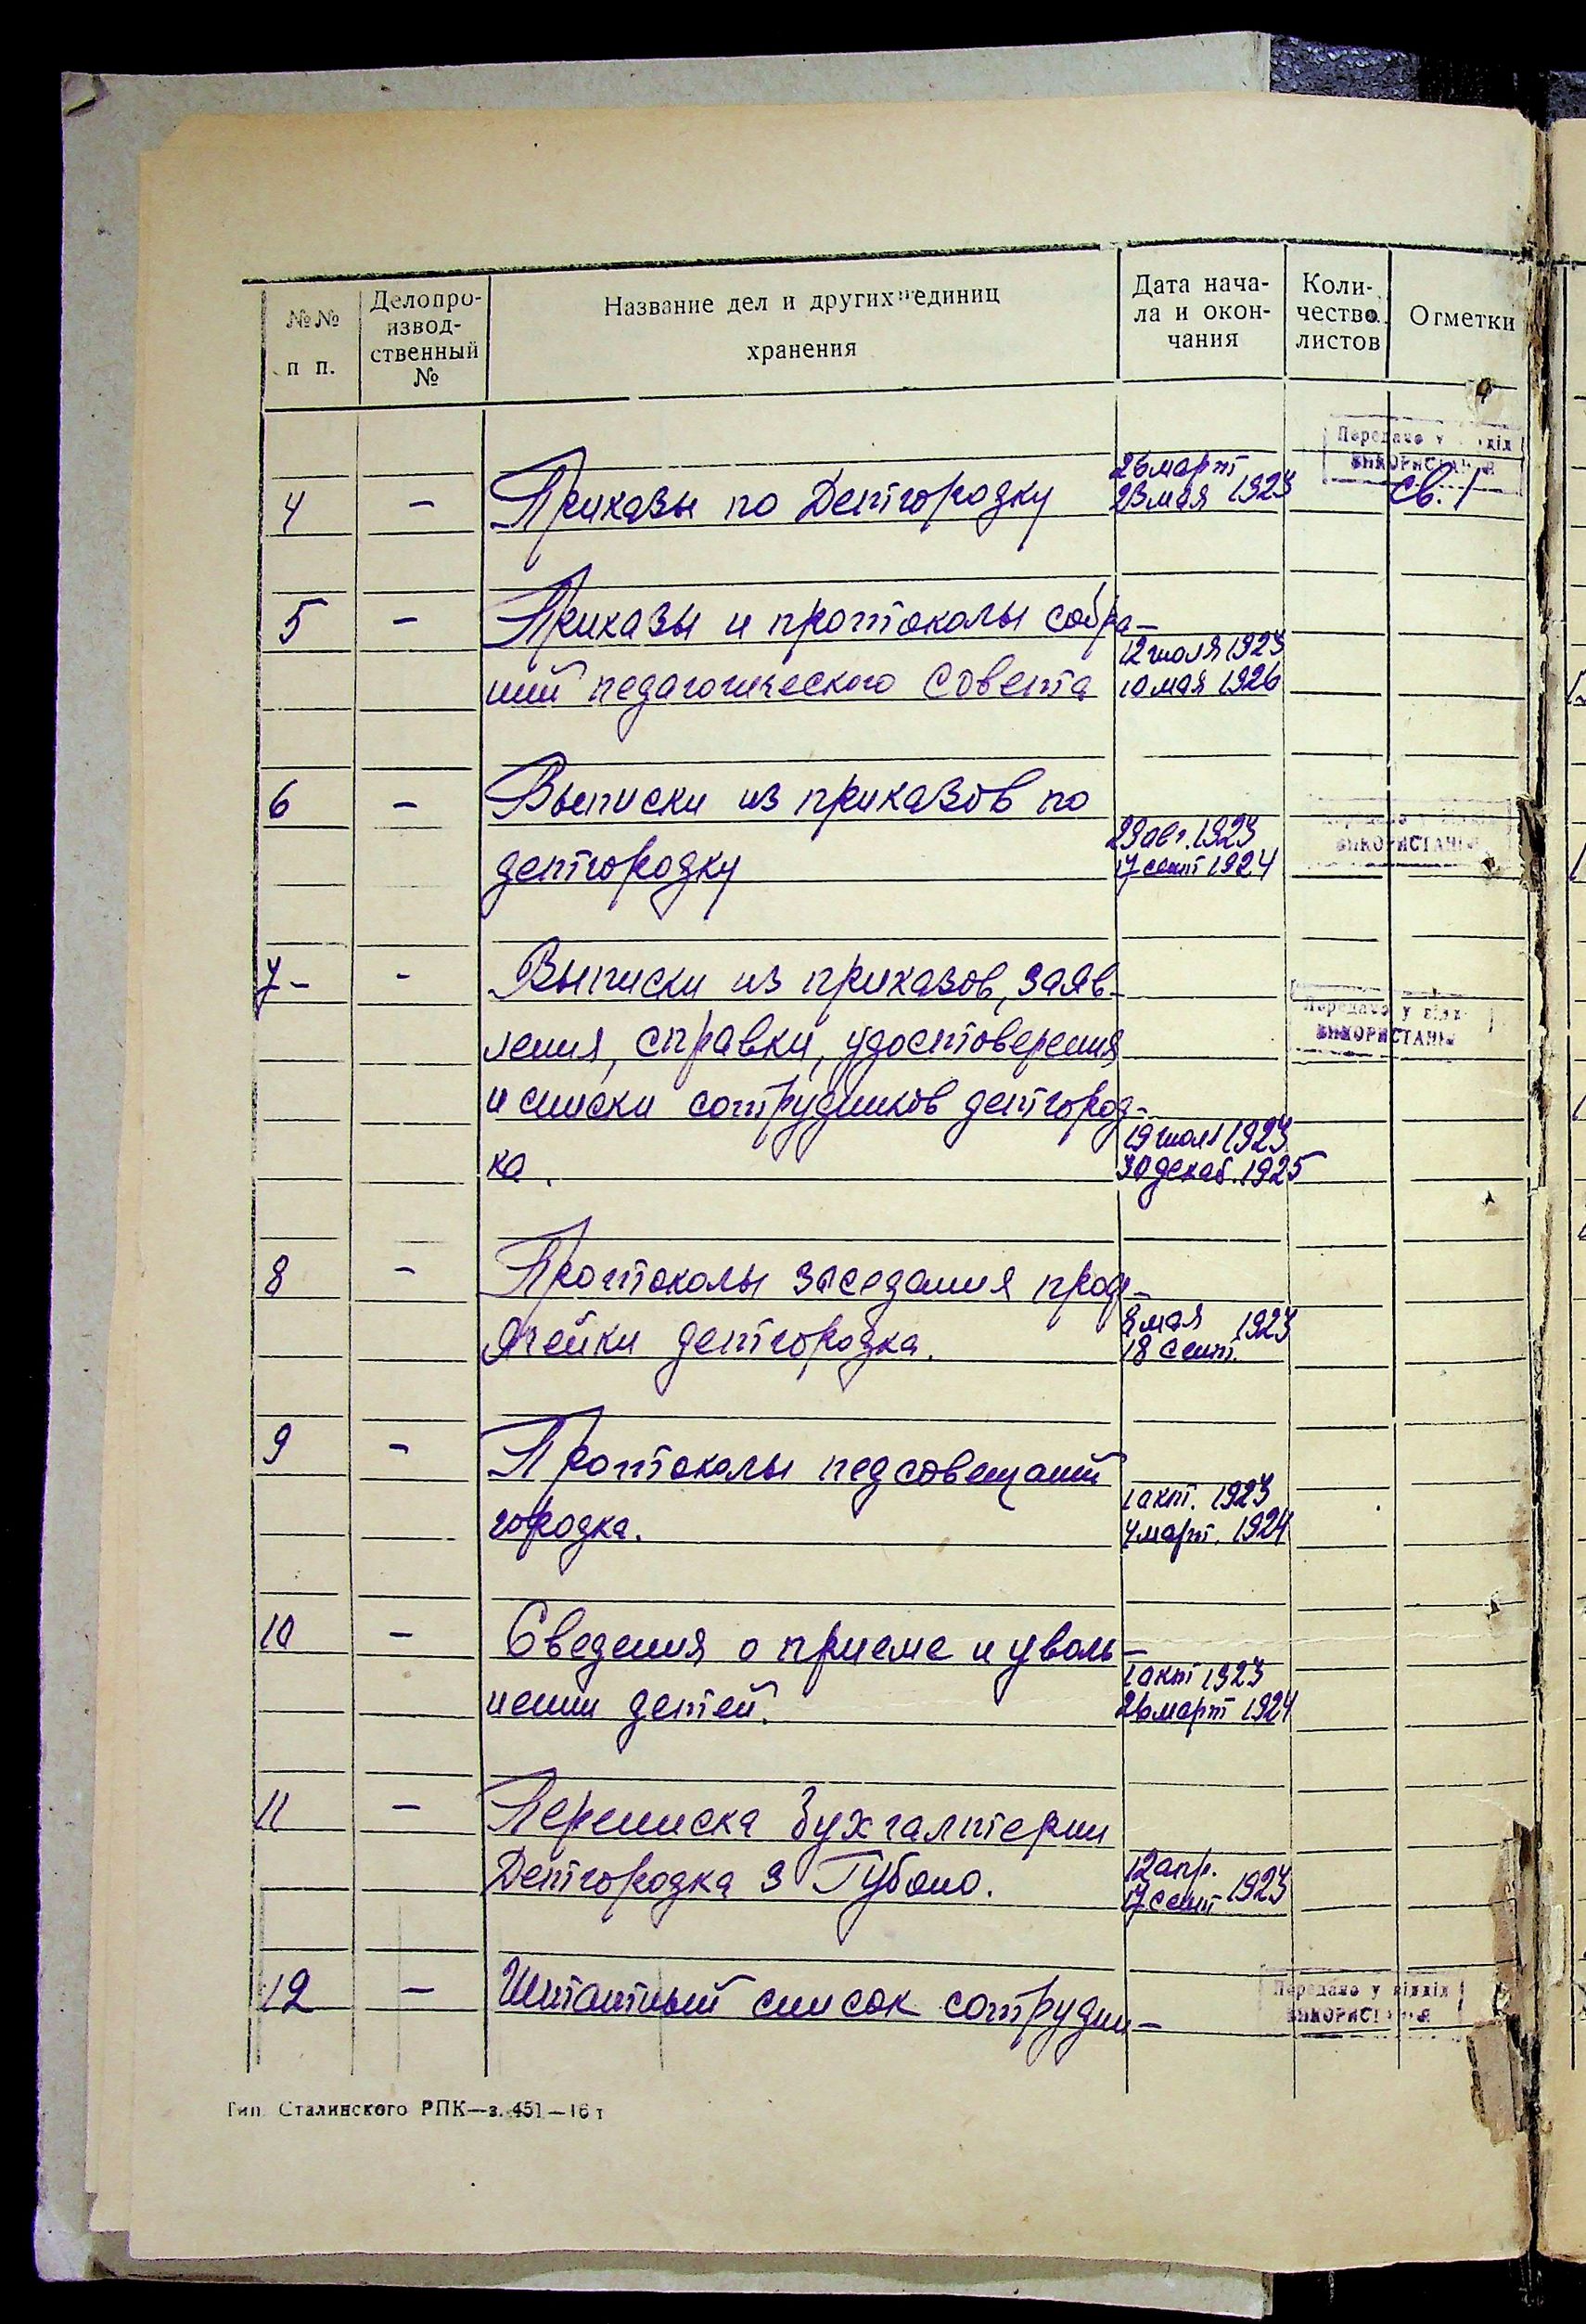 №№ п п.
Делопро-
извод-
ственный
№
Название дел и других единиц
хранения
Дата нача-
ла и окон-
чания
Коли-
чество
листов
Отметки
Передано у відділ
використання
26 март
4 – Приказы по Детгородку 23 мая 1923 св. 1
5 – Приказы и протоколы собра-
12 июля 1923
ний педагогического Совета 10 мая 1926
6 – Выписки из приказов по
Передано у відділ
використання
29 авг. 1923
детгородку 17 сент 1924
7- - Выписки из приказов, заяв-
Передано у відділ
використання
ления, справки, удостоверения
и списки сотрудников детгород-
19 июля 1923
ка. 30 декаб. 1925
8 – Протоколы заседания проф-
8 мая 1923
ячейки детгородка. 18 сент.
9 – Протоколы педсовещаний
1 окт. 1923
городка. 4 март. 1924
10 – Сведения о приеме и уволь-
1 окт 1923
нении детей. 26 март 1924
11 – Переписка бухгалтерии
12 апр.
Детгородка з Губоно. 17 сент 1923
12 – Штатный список сотрудни-
Передано у відділ
використання
Тип. Сталинского РПК—з. 451—16 т